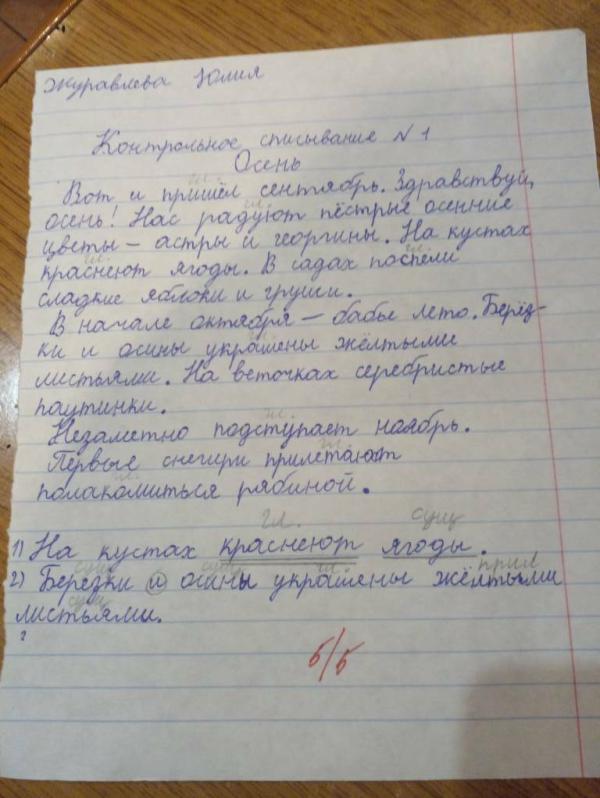 Журавлева Юлия
Контрольное списывание N 1
Осень
гл.
Вот и пришёл сентябрь. Здравствуй,
гл.
осень! Нас радуют пёстрые осенние
цветы – астры и георгины. На кустах
гл. гл.
краснеют ягоды. В садах поспели
сладкие яблоки и груши.
В начале октября – бабье лето. Берёз-
ки и осины украшены жёлтыми
листьями. На веточках серебристые
паутинки.
гл.
Незаметно подступает ноябрь.
гл.
Первые снегири прилетают
гл.
полакомиться рябиной.
гл. сущ
1) На кустах краснеют ягоды.
сущ сущ гл. прил
2) Березки и осины украшены жёлтыми
сущ
листьями.
5/5